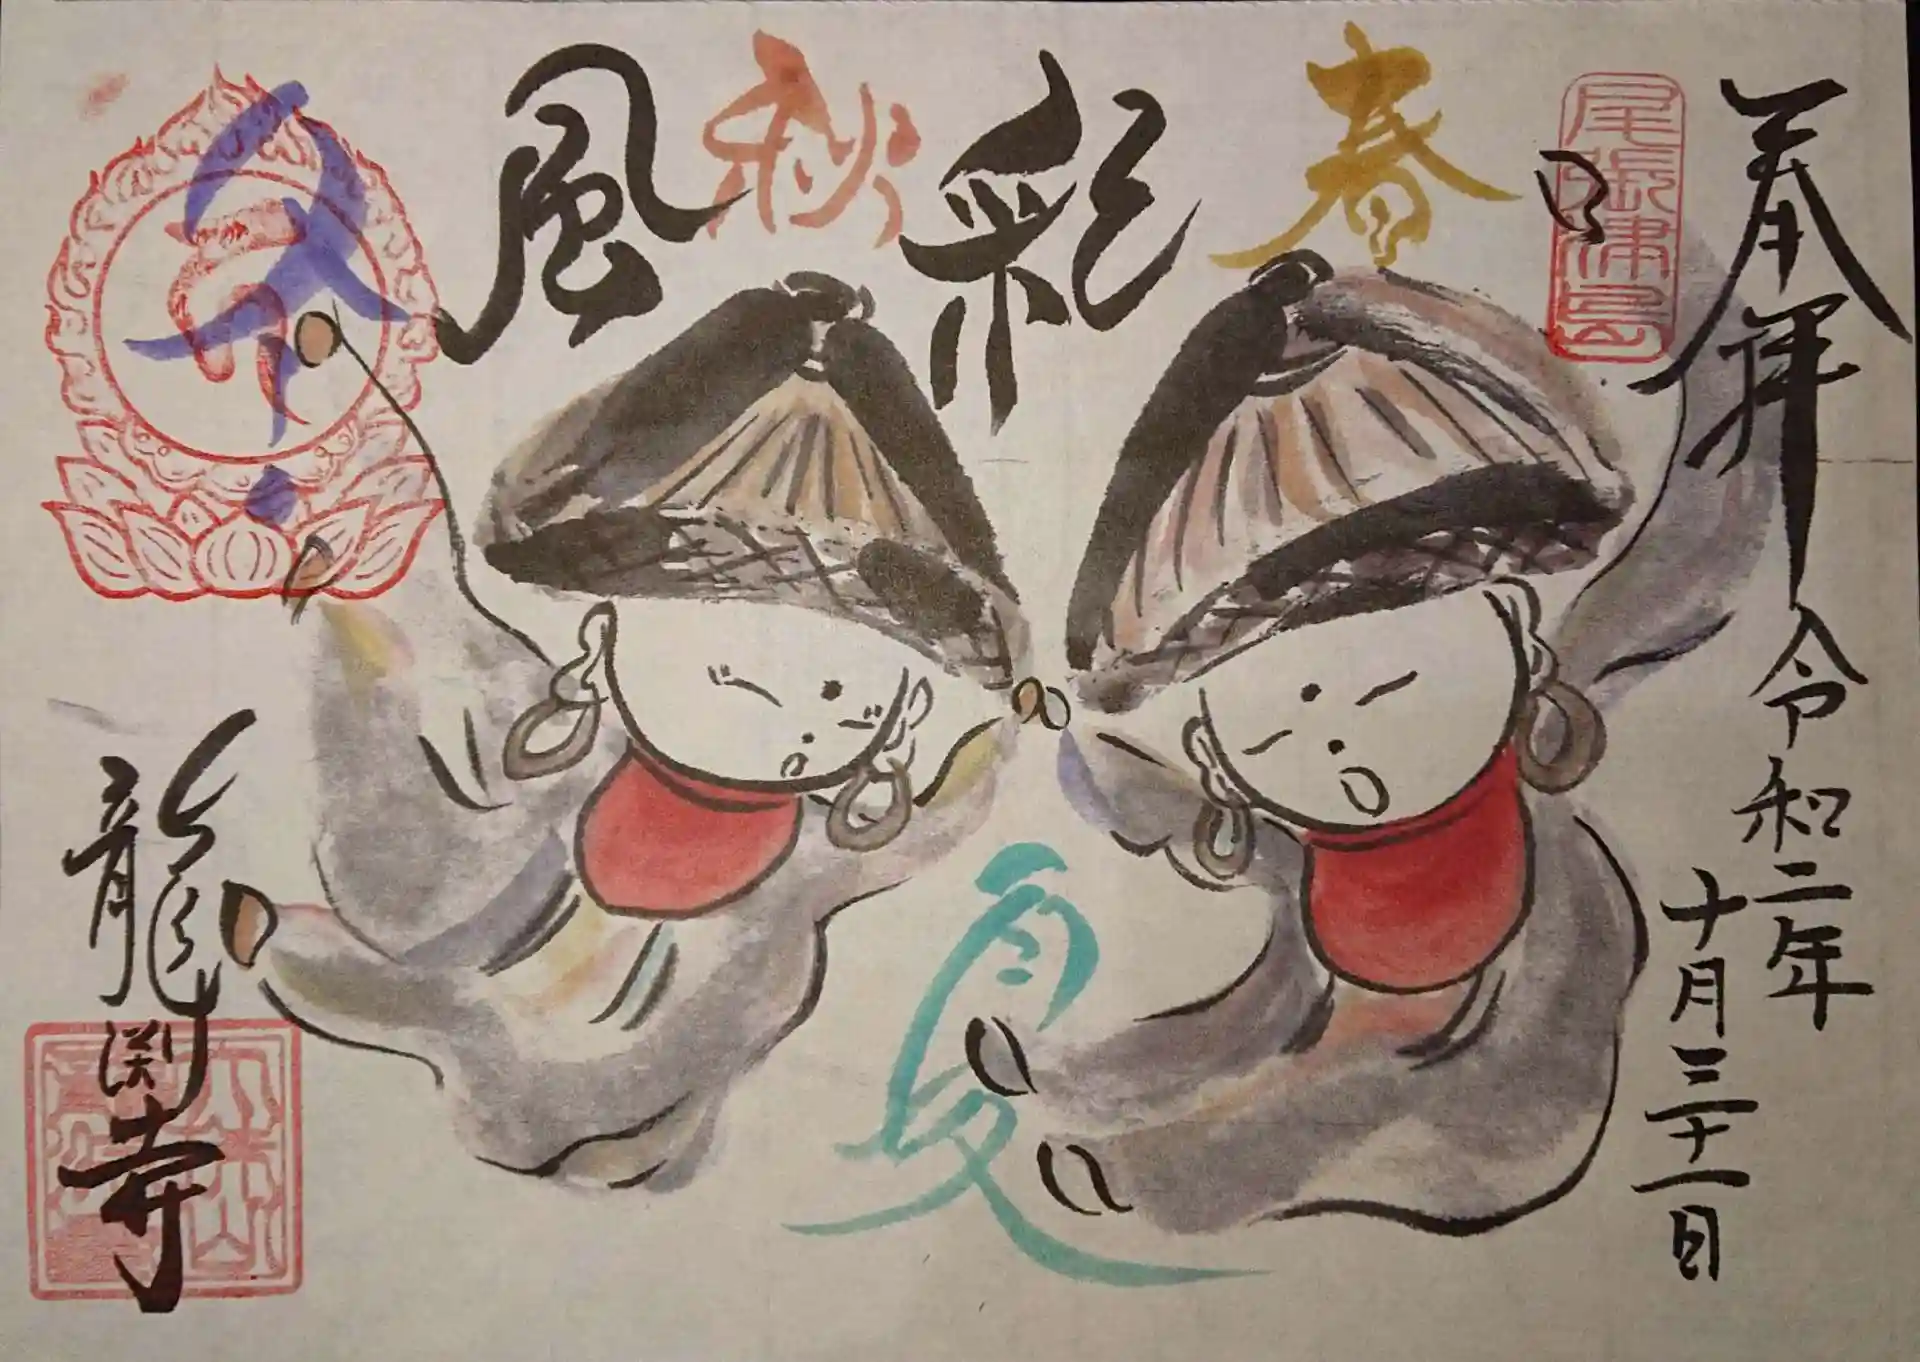 奉拝
令和二年
十月三十一日
尾張津島
春
彩
秋
風
冬
夏
龍渕寺